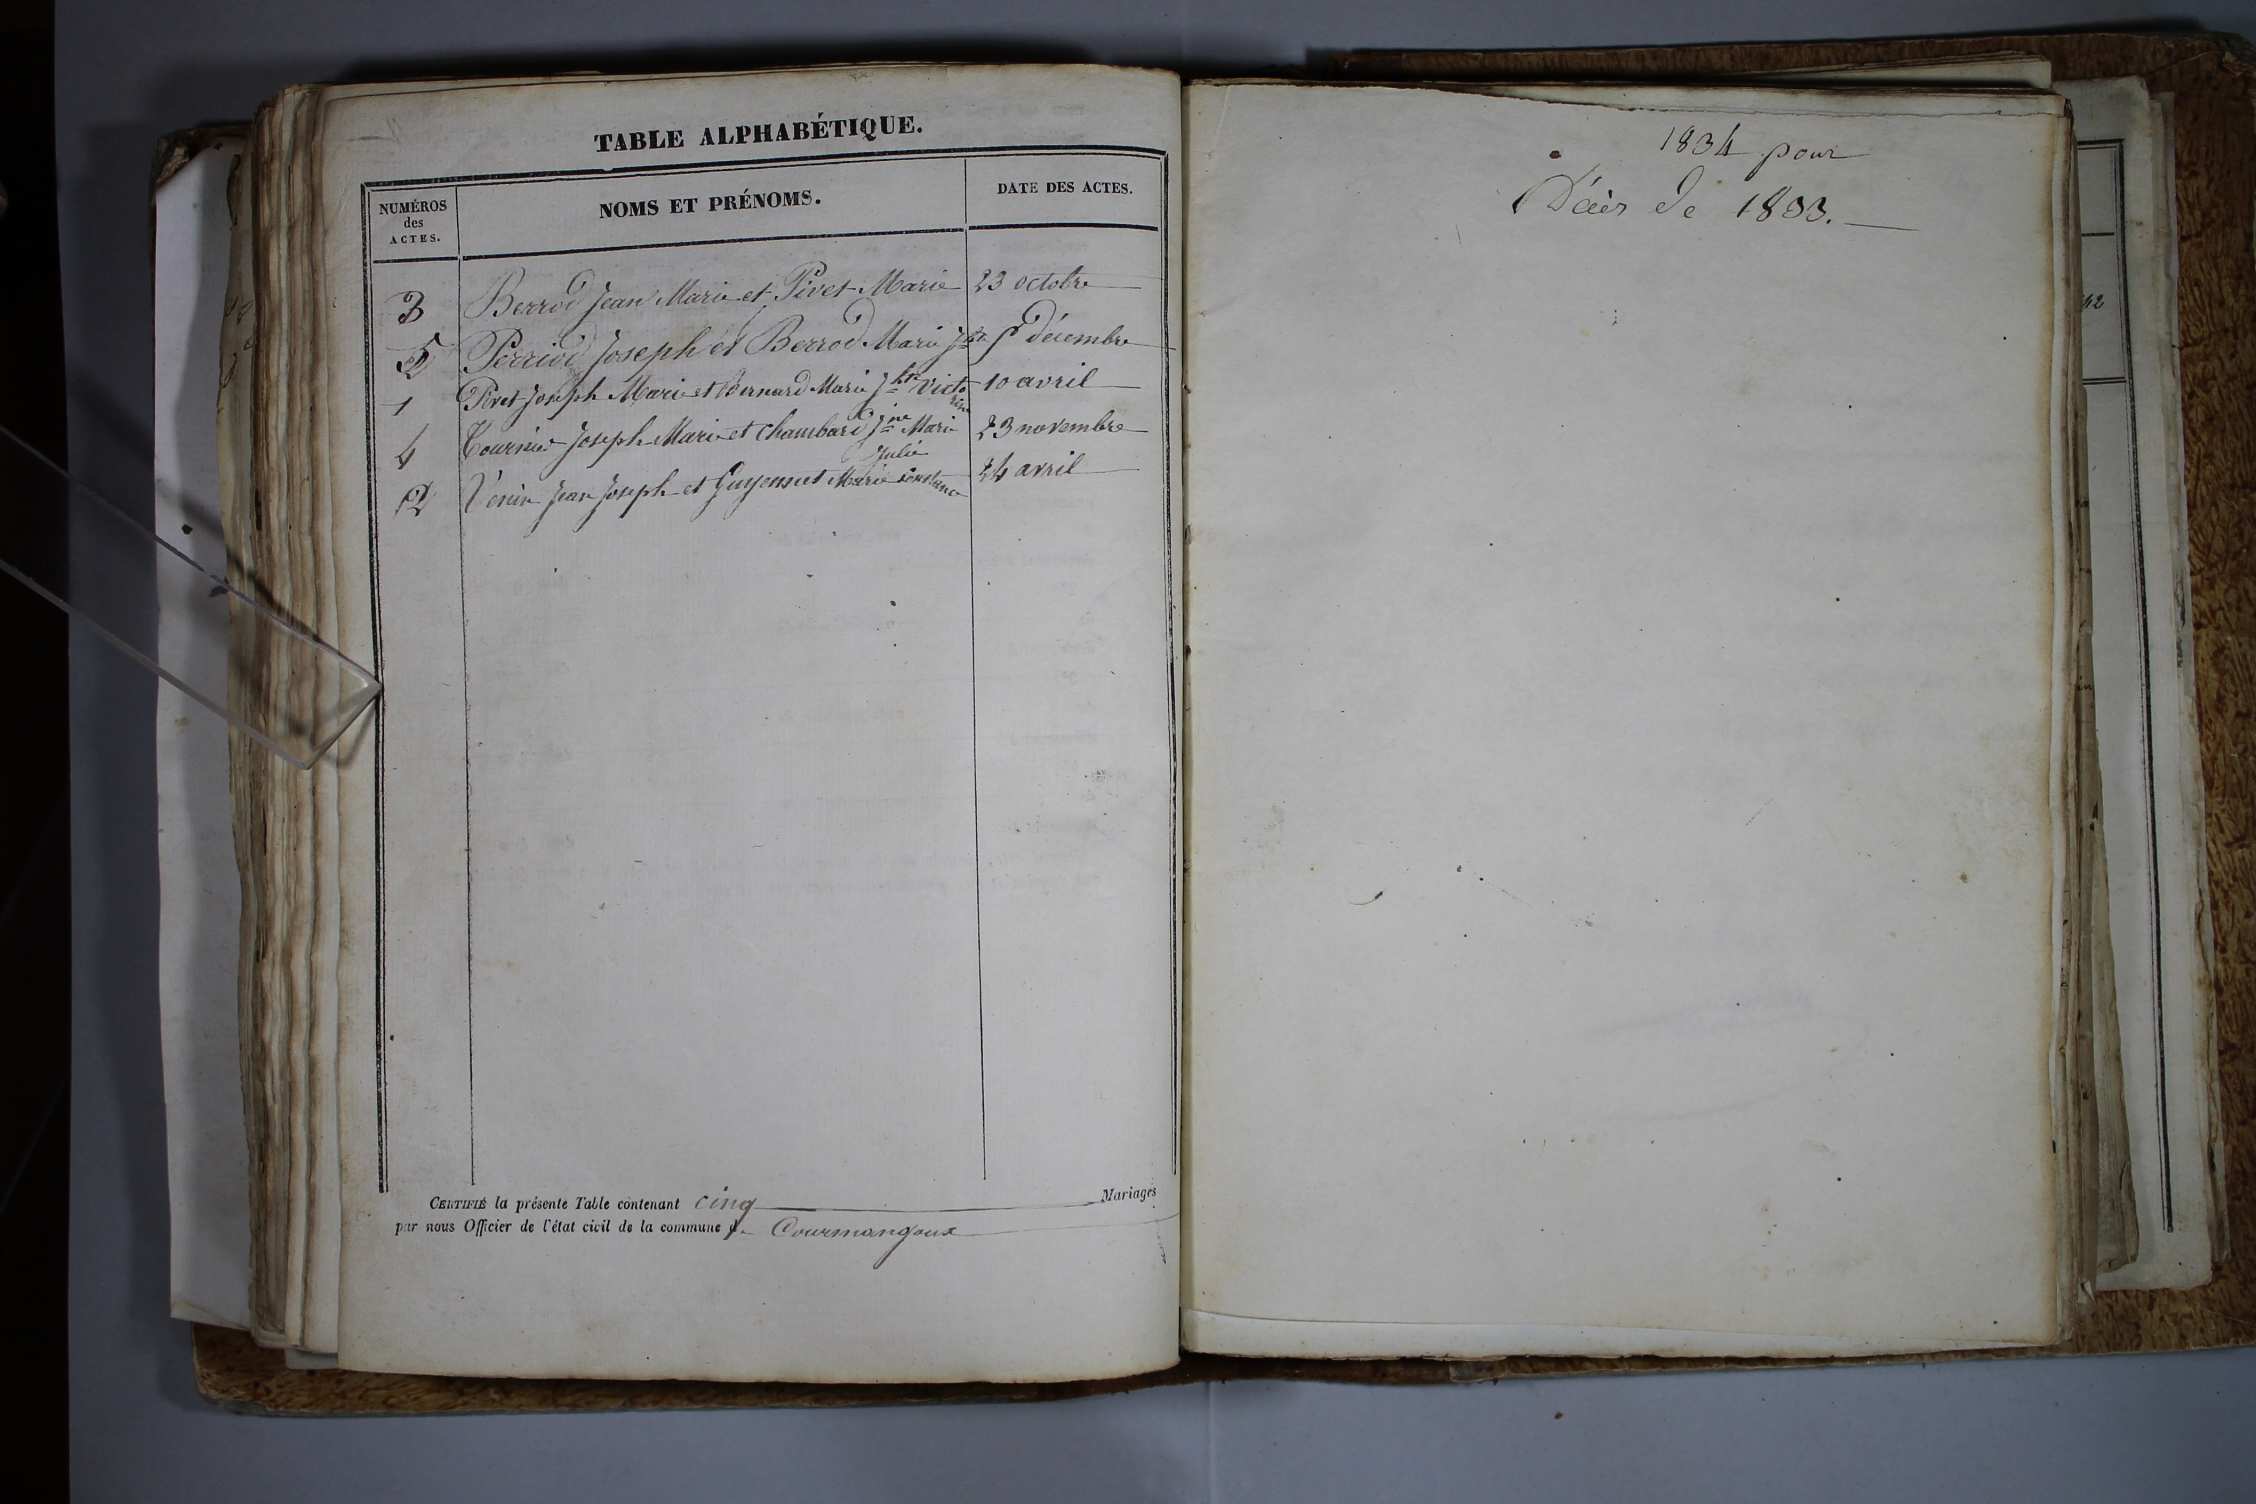 TABLE ALPHABÉTIQUE.
NUMÉROS
des
ACTES.
NOMS ET PRÉNOMS.
DATE DES ACTES.
3 Berrod Jean Marie et Pivet Marie 23 octobre
5 Perriod Joseph et Berrod Marie décembre
1 Pivet Joseph Marie et Bernard Marie Victo 10 avril
rine
4 Tournier Joseph Marie et Chambard Jne Marie 23 novembre
Julie
2 Venin Jean Joseph et Guyennet Marie Constance 24 avril
CERTIFIÉ la présente Table contenant cinq Mariages
par nous Officier de l'état civil de la commune d Courmangoux
1834 pour
Décès de 1833.